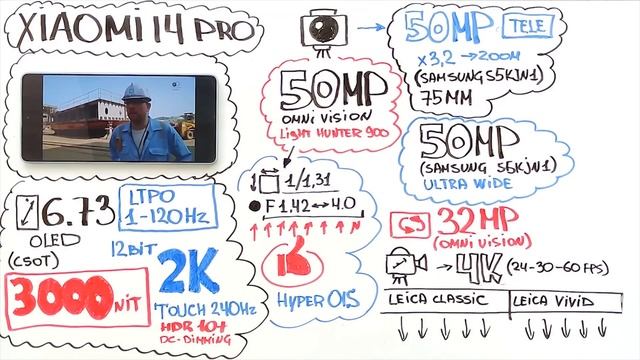 XIAOMI 14 PRO
50MP
OMNI VISION
LIGHT HUNTER 900
50MP TELE
x3,2 → 200M
(SAMSUNG S5KJN1)
75MM
50MP
(SAMSUNG S5KJN1)
ULTRA WIDE
1/1,31
F1.42 ↔ 4.0
HYPER OIS
6.73
OLED
(CSOT)
LTPO
1-120Hz
12BIT
2K
3000 NIT
TOUCH 240Hz
HDR 10+
DC-DIMMING
32MP
(OMNI VISION)
4K (24-30-60 FPS)
LEICA CLASSIC LEICA VIVID